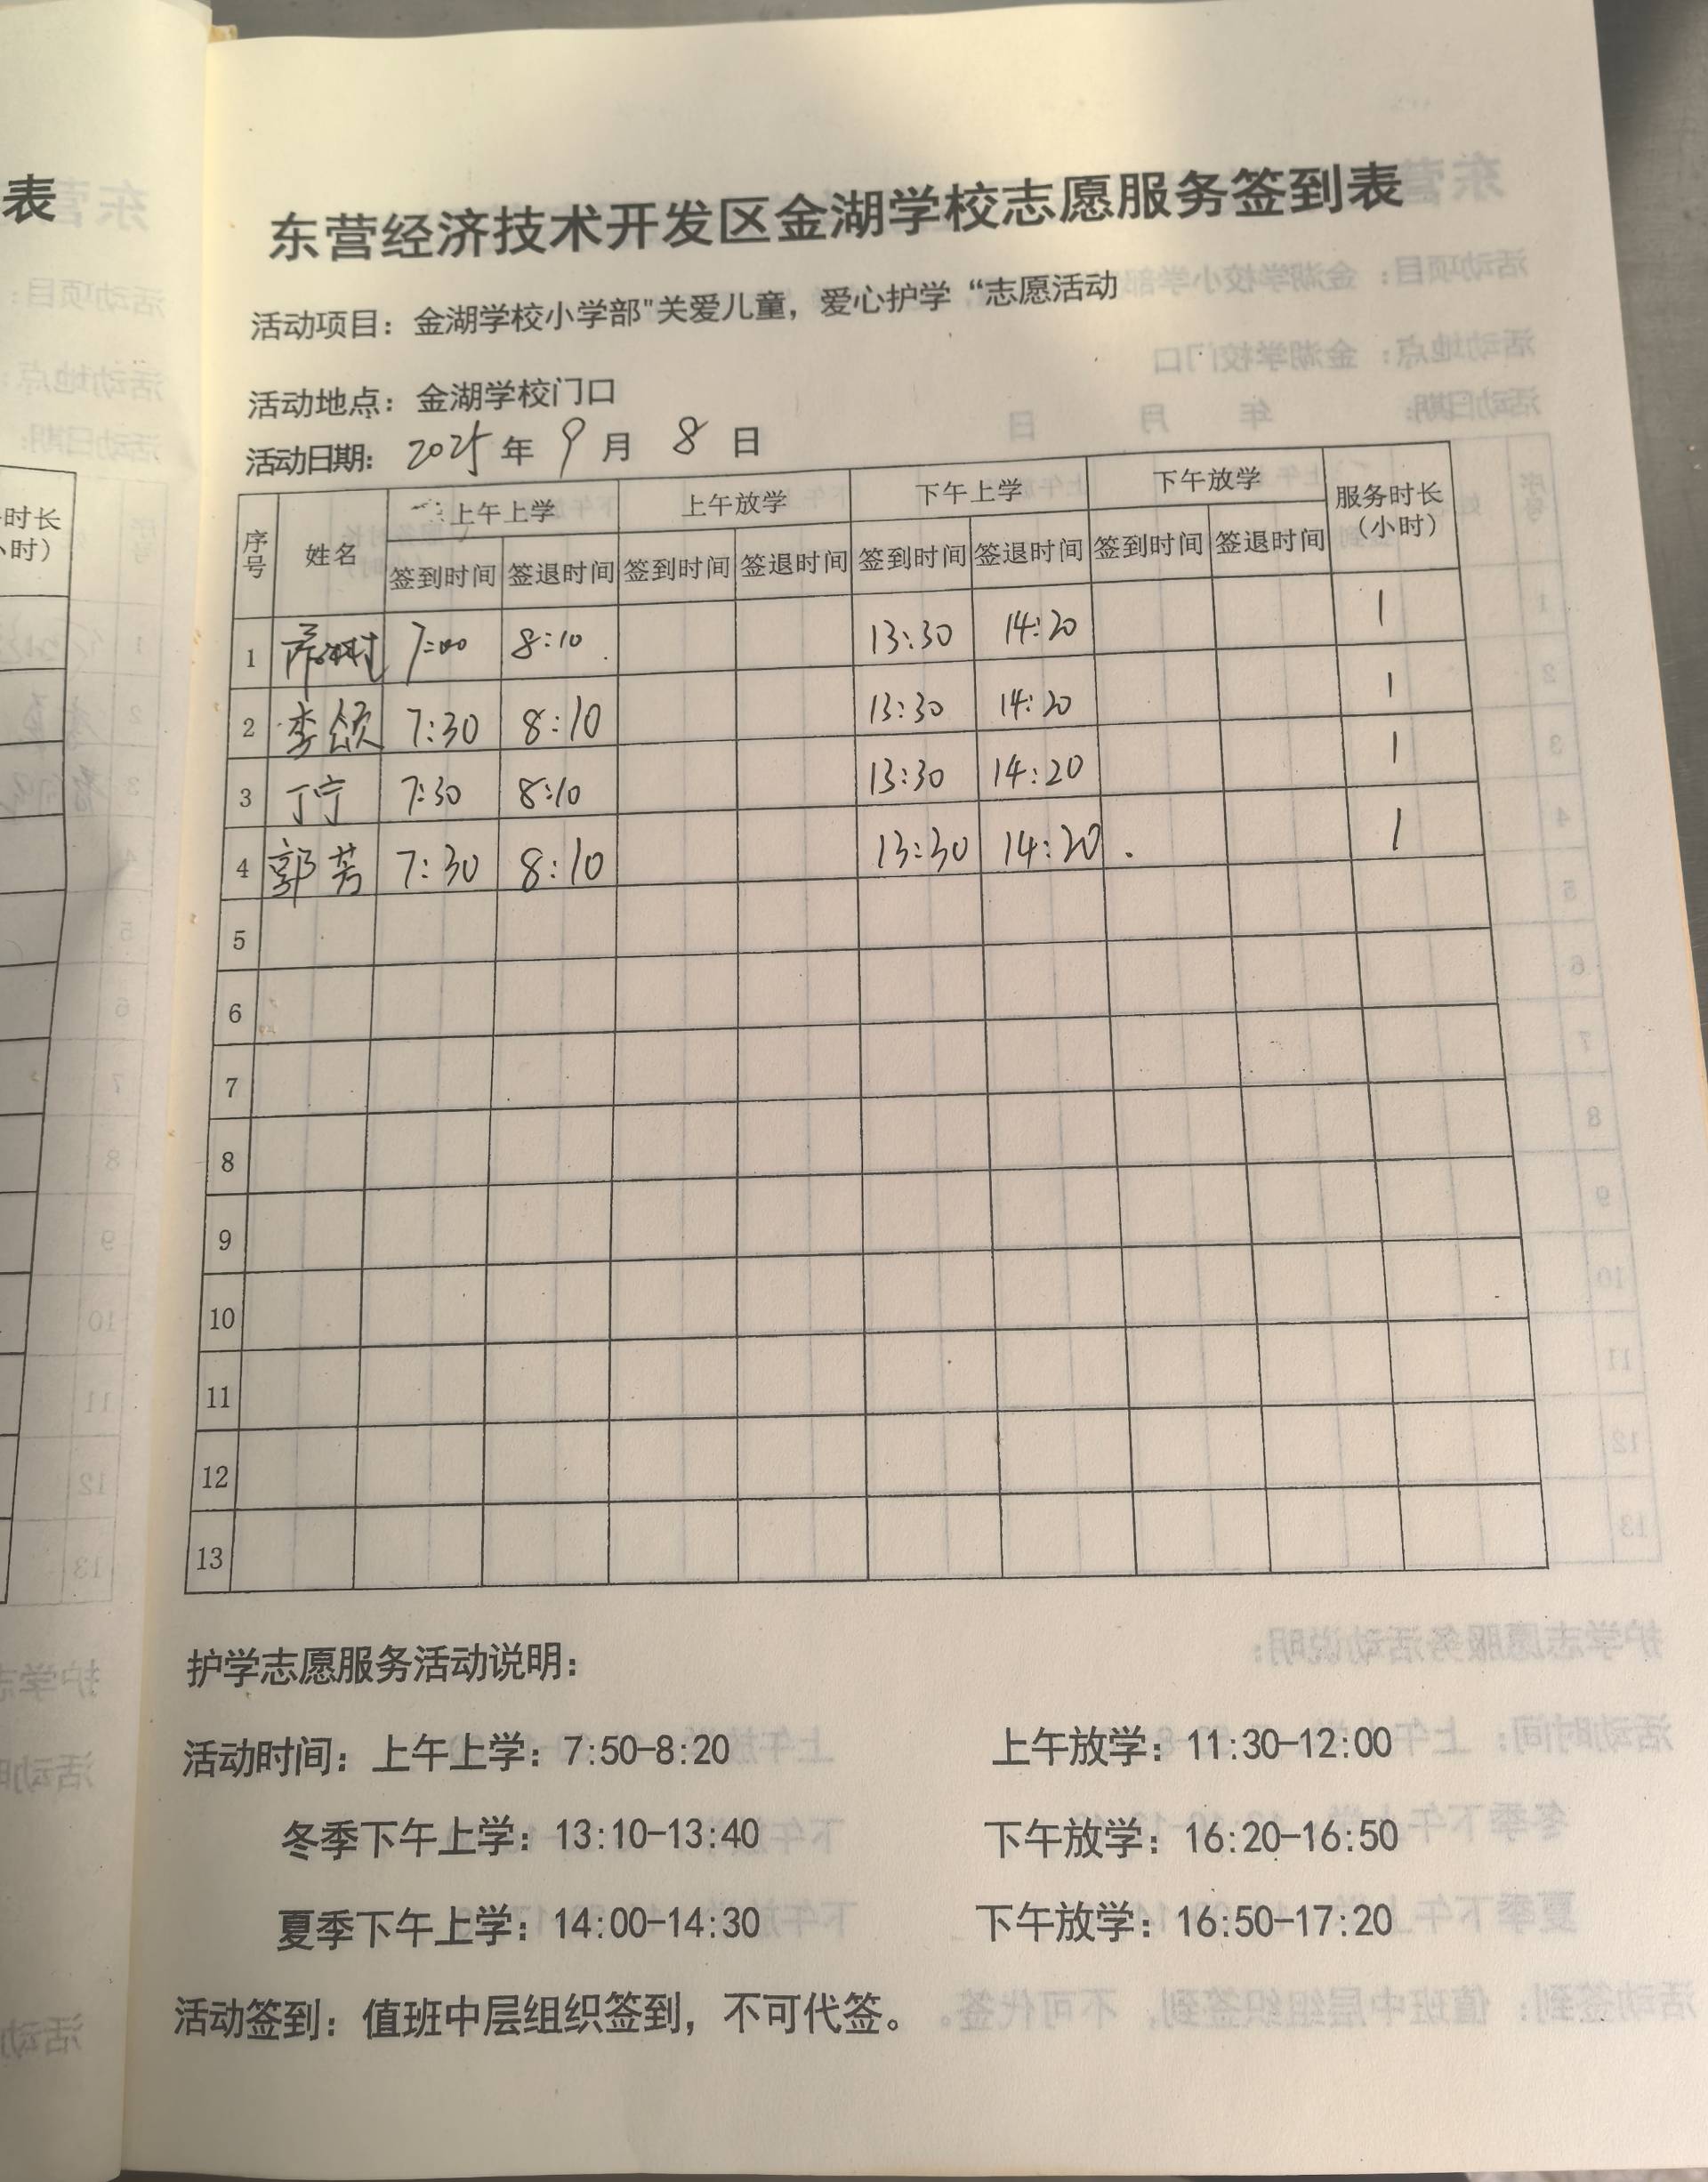 东营经济技术开发区金湖学校志愿服务签到表
活动项目：金湖学校小学部"关爱儿童，爱心护学“志愿活动
活动地点：金湖学校门口
活动日期：2025年9月8日
序号 姓名 上午上学 上午放学 下午上学 下午放学 服务时长（小时）
签到时间 签退时间 签到时间 签退时间 签到时间 签退时间 签到时间 签退时间
1 7:00 8:10 13:30 14:20 1
2 李颂 7:30 8:10 13:30 14:20 1
3 丁宁 7:30 8:10 13:30 14:20 1
4 郭芳 7:30 8:10 13:30 14:20 1
5
6
7
8
9
10
11
12
13
护学志愿服务活动说明：
活动时间：上午上学：7:50-8:20 上午放学：11:30-12:00
冬季下午上学：13:10-13:40 下午放学：16:20-16:50
夏季下午上学：14:00-14:30 下午放学：16:50-17:20
活动签到：值班中层组织签到，不可代签。